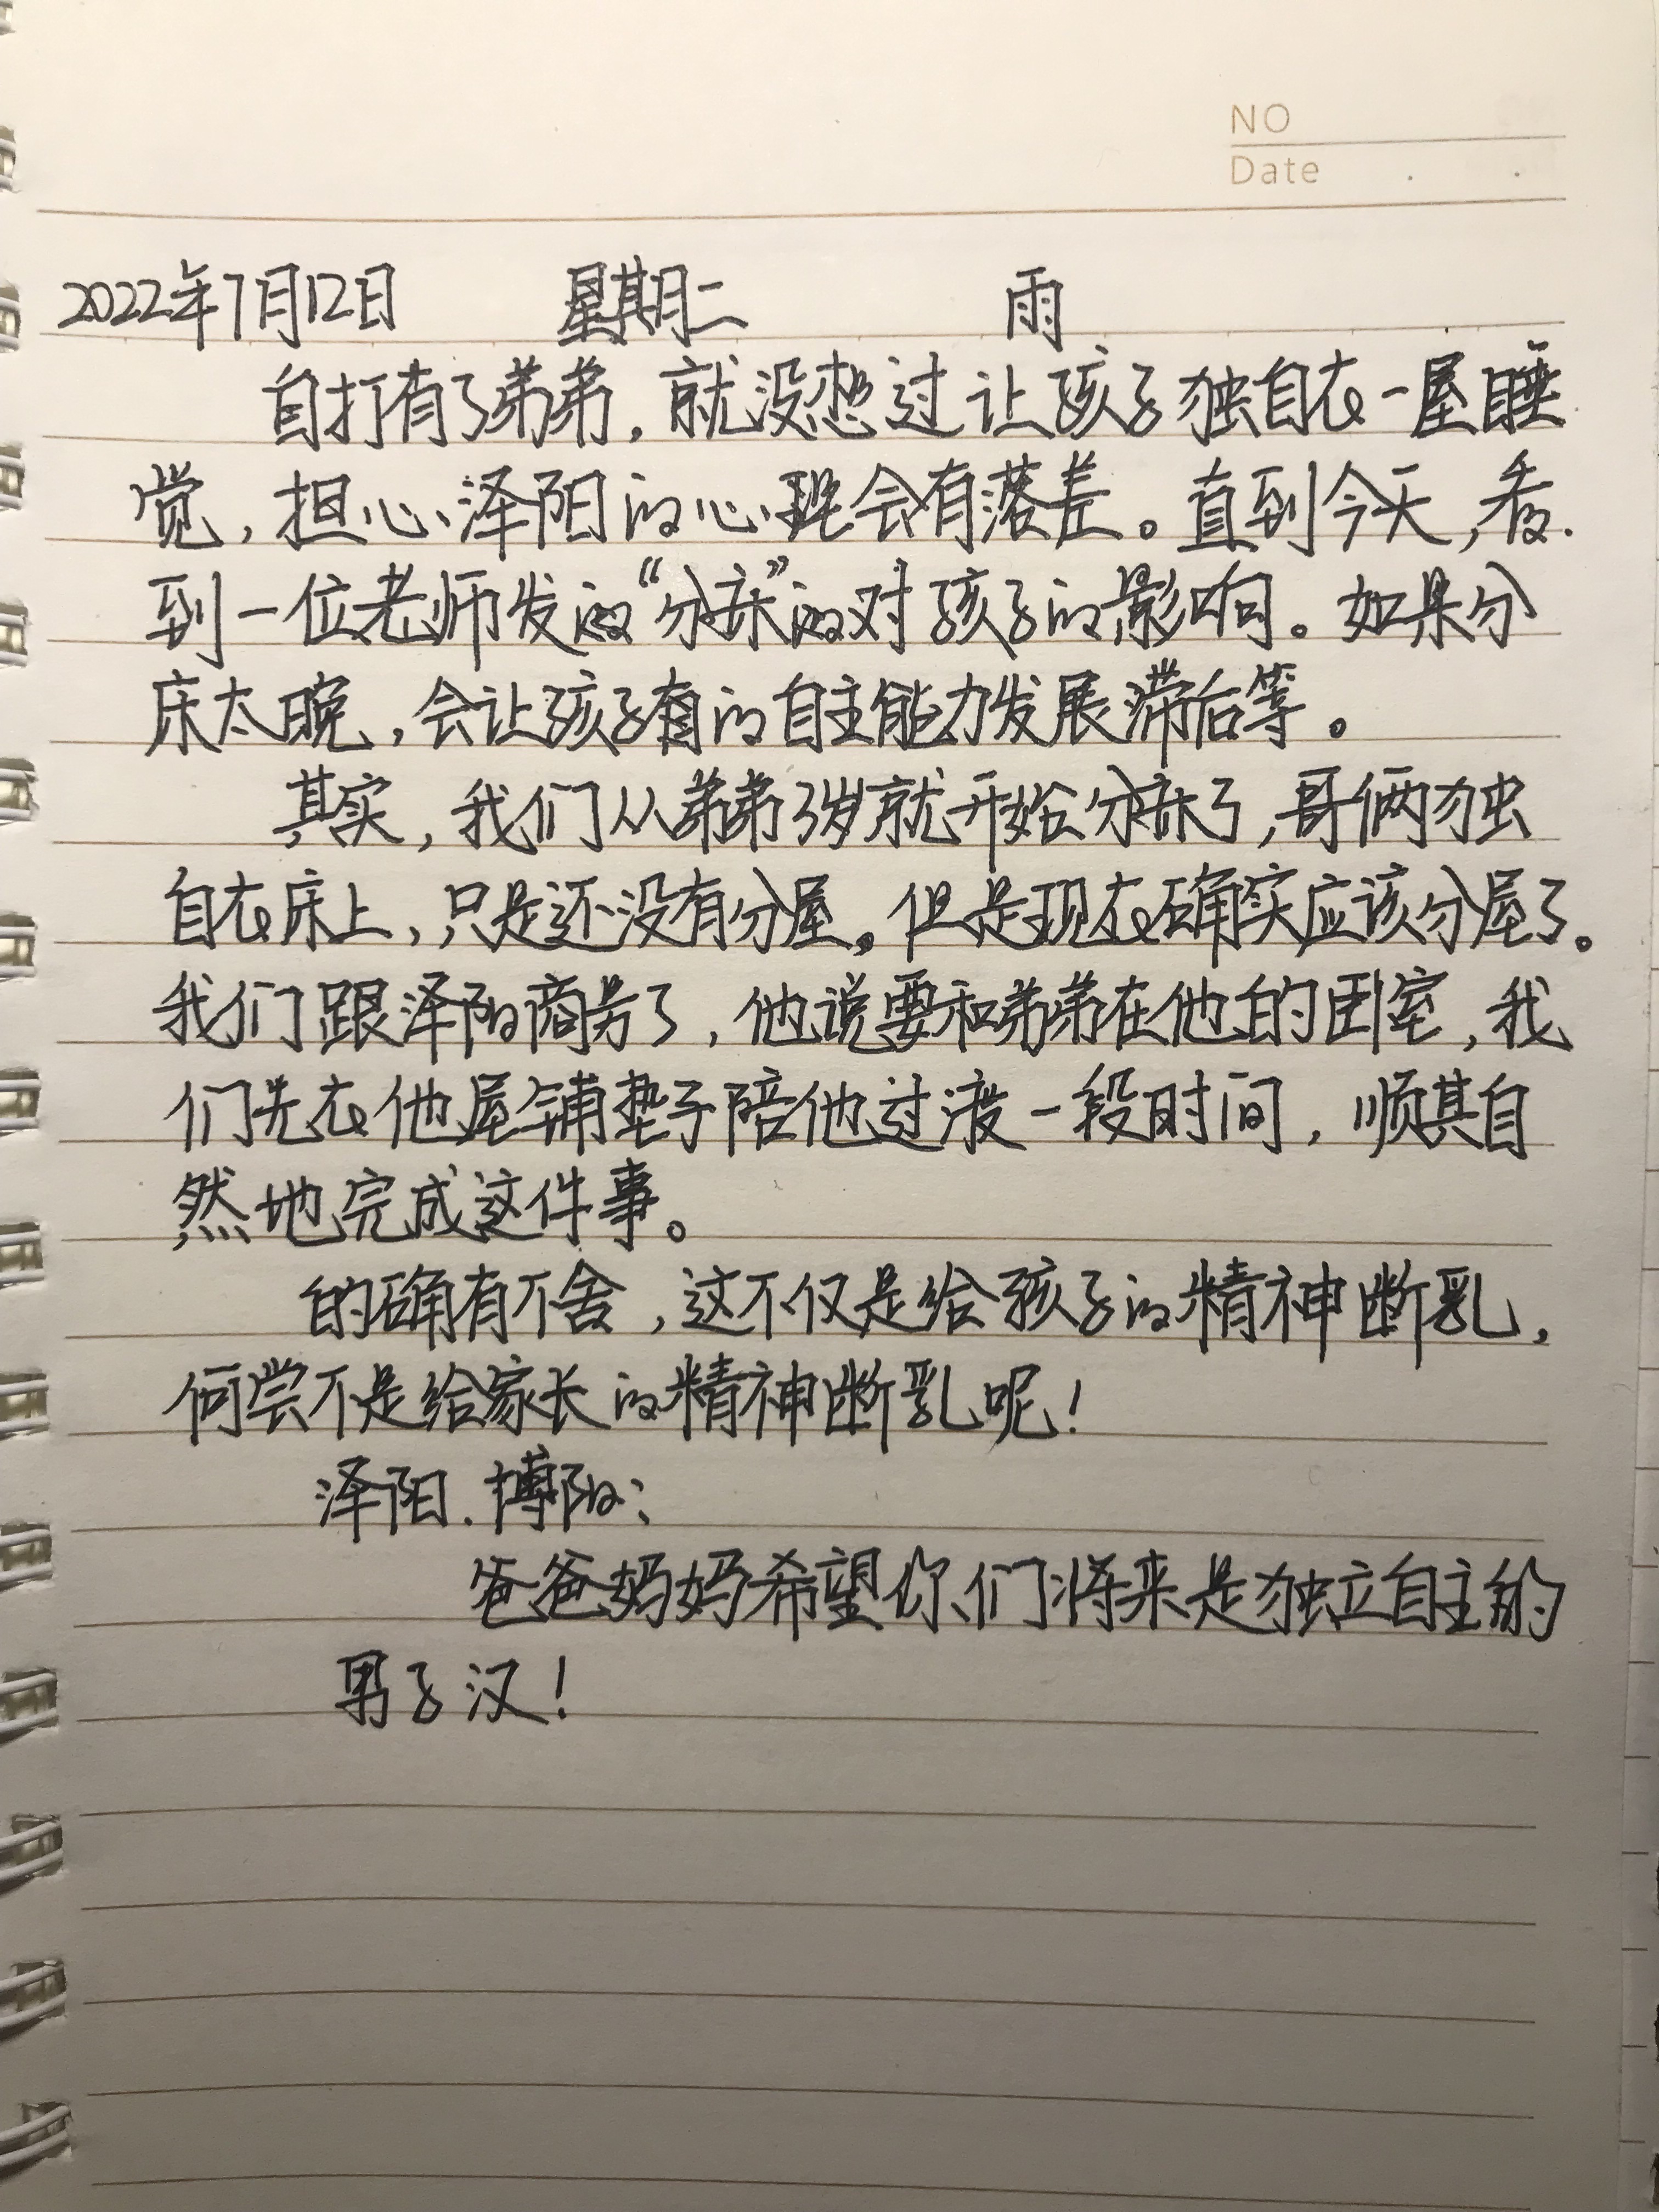 NO
Date . .
2022年7月12日 星期二 雨
自打有了弟弟，就没想过让孩子独自在一屋睡
觉，担心泽阳的心理会有落差。直到今天，看
到一位老师发的“分床”的对孩子的影响。如果分
床太晚，会让孩子有的自主能力发展滞后等。
其实，我们从弟弟3岁就开始分床了，哥俩独
自在床上，只是还没有分屋。但是现在确实应该分屋了。
我们跟泽阳商务了，他说要和弟弟在他的卧室，我
们先在他屋铺垫子陪他过渡一段时间，顺其自
然地完成这件事。
的确有不舍，这不仅是给孩子的精神断乳，
何尝不是给家长的精神断乳呢！
泽阳.博阳：
爸爸妈妈希望你们将来是独立自主的
男子汉！